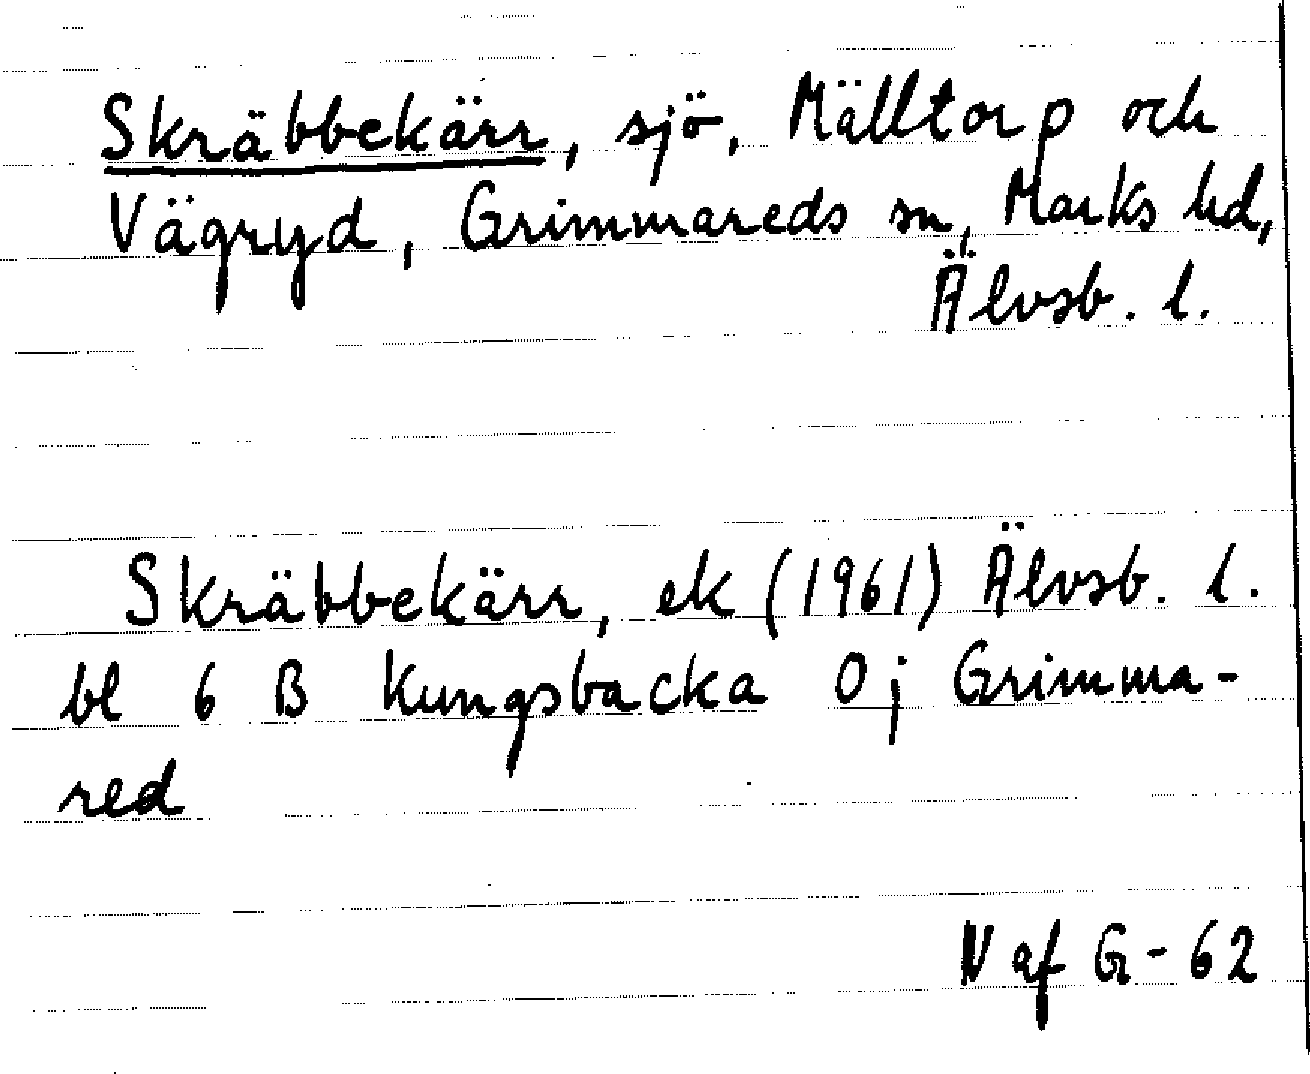 Skräbbekärr, sjö, Mälltorp och
Vägryd, Grimmareds sn, Marks hd,
Älvsb. l.
Skräbbekärr, ek (1961) Älvsb. l.
bl 6 B Kungsbacka 0j Grimma-
red
N af G-62